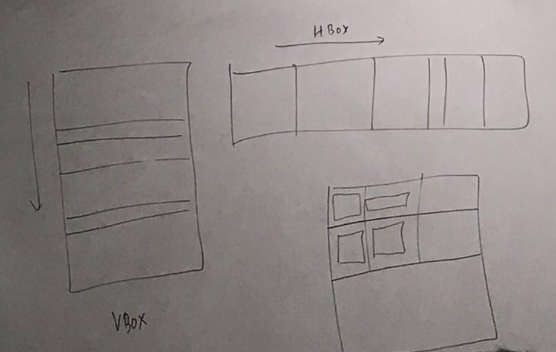 HBox
VBox